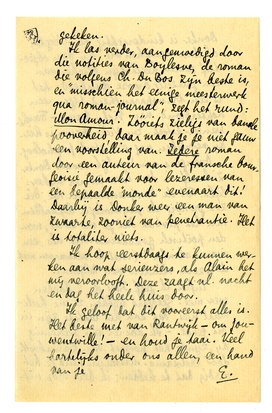 gekeken.
Ik las verder, aangemoedigd door
die notities van Boylesve, de roman
die volgens Ch. Du Bos zijn beste is,
en misschien het enige meesterwerk
qua roman-journal", zegt het rund:
Mon Amour! Zooiets zieligs van banale
pooverheid, daar maak je je niet gauw
een voorstelling van. Iedere roman
door een auteur van de fransche bour-
geoisie gemaakt voor lezeressen van
een bepaalde "monde" evenaart dit!
Daarbij is Donker wel een man van
zwaarte, zooniet van penetrantie. Het
is totaliter niets.
Ik hoop eerstdaags te kunnen wer-
ken aan wat serieuzers, als Alain het
mij veroorlooft. Deze zaagt nl. nacht
en dag het heele huis door.
Ik geloof dat dit vooreerst alles is.
Het beste met van Rantwijk — om Jou-
wentwille! — en houd je taai. Veel
hartelijks onder ons allen, een hand
van je
E.